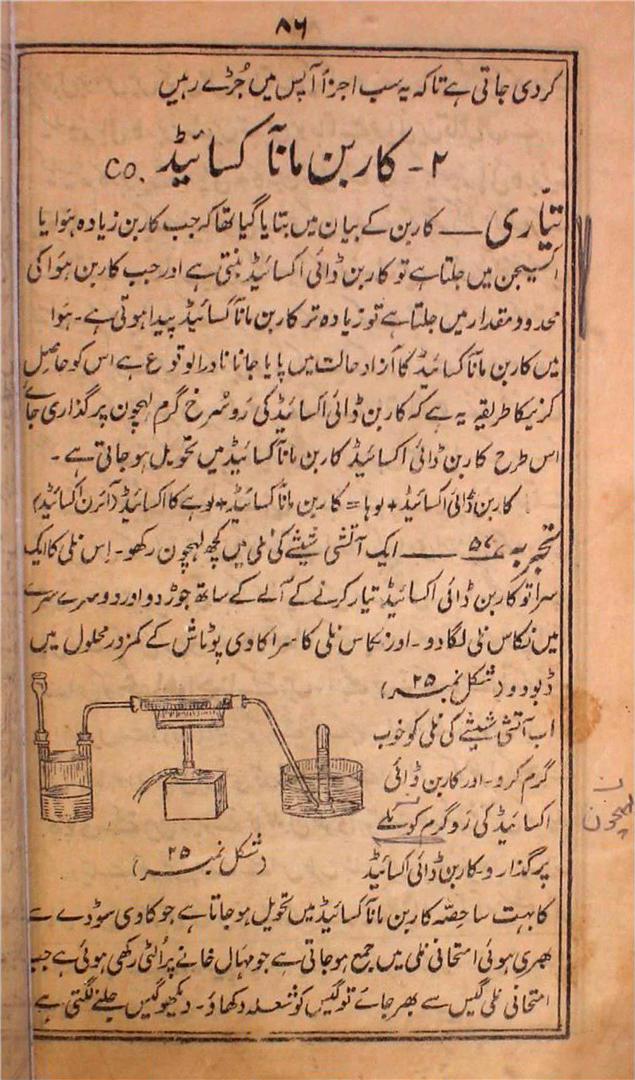 ۸۶
کر دی جاتی ہے تاکہ یہ سب اجزأ آپس میں جُڑے رہیں
۲- کاربن مانآکسائیڈ CO.
تیّاری — کاربن کے بیان میں بتایا گیا تھا کہ جب کاربن زیادہ ہَوا یا
آکسیجن میں جلتا ہے تو کاربن ڈائی اکسائیڈ بنتی ہے اور جب کاربن ہَوا کی
محدود مقدار میں جلتا ہے تو زیادہ تر کاربن مانآکسائیڈ پیدا ہوتی ہے۔ ہَوا
میں کاربن مانآکسائیڈ کا آزاد حالت میں پایا جانا نادرالوقوع ہے اس کو حاصِل
کرنیکا طریقہ یہ ہے کہ کاربن ڈائی اکسائیڈ کی رَو سُرخ گرم لہچون پر گذاری جائے
اس طرح کاربن ڈائی اکسائیڈ کاربن مانآکسائیڈ میں تحویل ہو جاتی ہے۔
کاربن ڈائی اکسائیڈ + لوہا = کاربن مانآکسائیڈ + لوہے کا اکسائیڈ (آئرن اکسائیڈ)
تجربہ ۵۷ — ایک آتشی شیشے کی نلی میں کچھ لہچون رکھو۔ اِس نلی کا ایک
سرا تو کاربن ڈائی اکسائیڈ تیار کرنے کے آلے کے ساتھ جوڑ دو اور دوسرے سرے
میں نکاس نلی لگا دو۔ اور نکاس نلی کا سرا کاوی پوٹاش کے کمزور محلول میں
ڈبو دو (شکل نمبر ۲۵)
اب آتشی شیشے کی نلی کو خوب
گرم کرو۔ اور کاربن ڈائی
اکسائیڈ کی رَو گرم کوئلے
پر گذارو۔ کاربن ڈائی اکسائیڈ
لہچون
(شکل نمبر ۲۵)
کا بہت سا حِصّہ کاربن مانآکسائیڈ میں تحویل ہو جاتا ہے جو کاوی سوڈے سے
بھری ہوئی امتحانی نلی میں جمع ہو جاتی ہے جو مہال خانے پر اُلٹی رکھی ہوئی ہے جب
امتحانی نلی گیس سے بھر جائے تو گیس کو شعلہ دکھاؤ۔ دیکھو گیس جلنے لگتی ہے